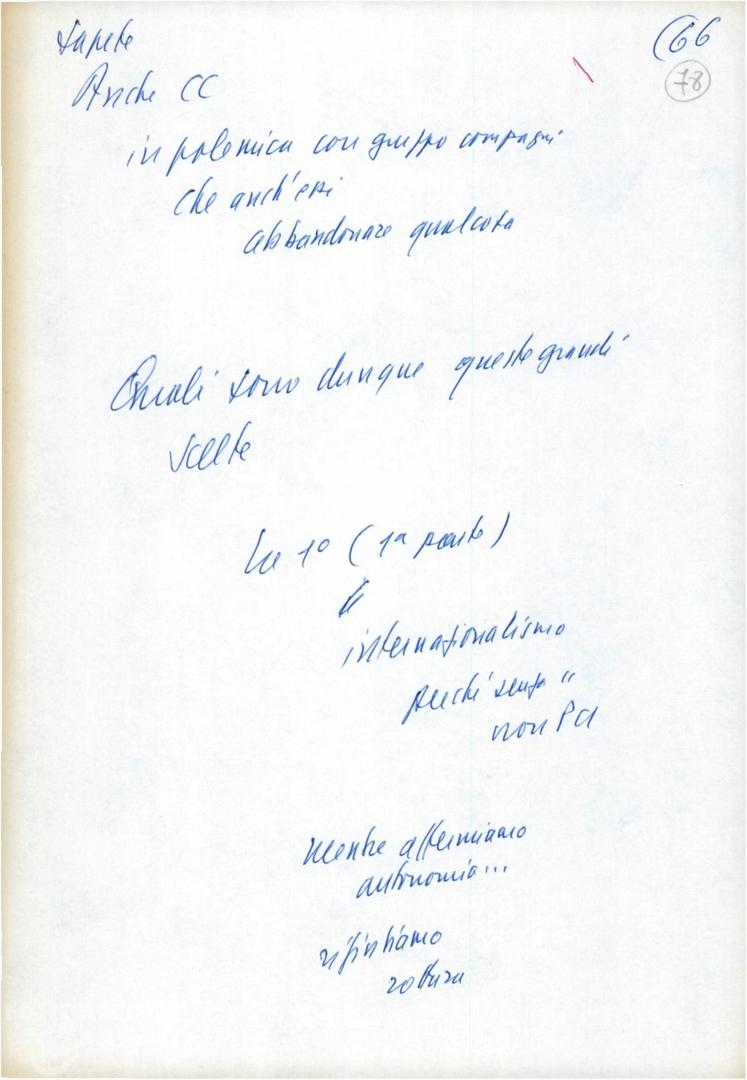 Sapete (66
78
Anche CC
in polemica con gruppo compagni
che anch'essi
abbandonare qualcosa
Quali sono dunque queste grandi
scelte
La 1° (1ª parte)
internazionalismo
perché senza "
non PCI
Mentre affermiamo
autonomia...
rifiutiamo
rottura